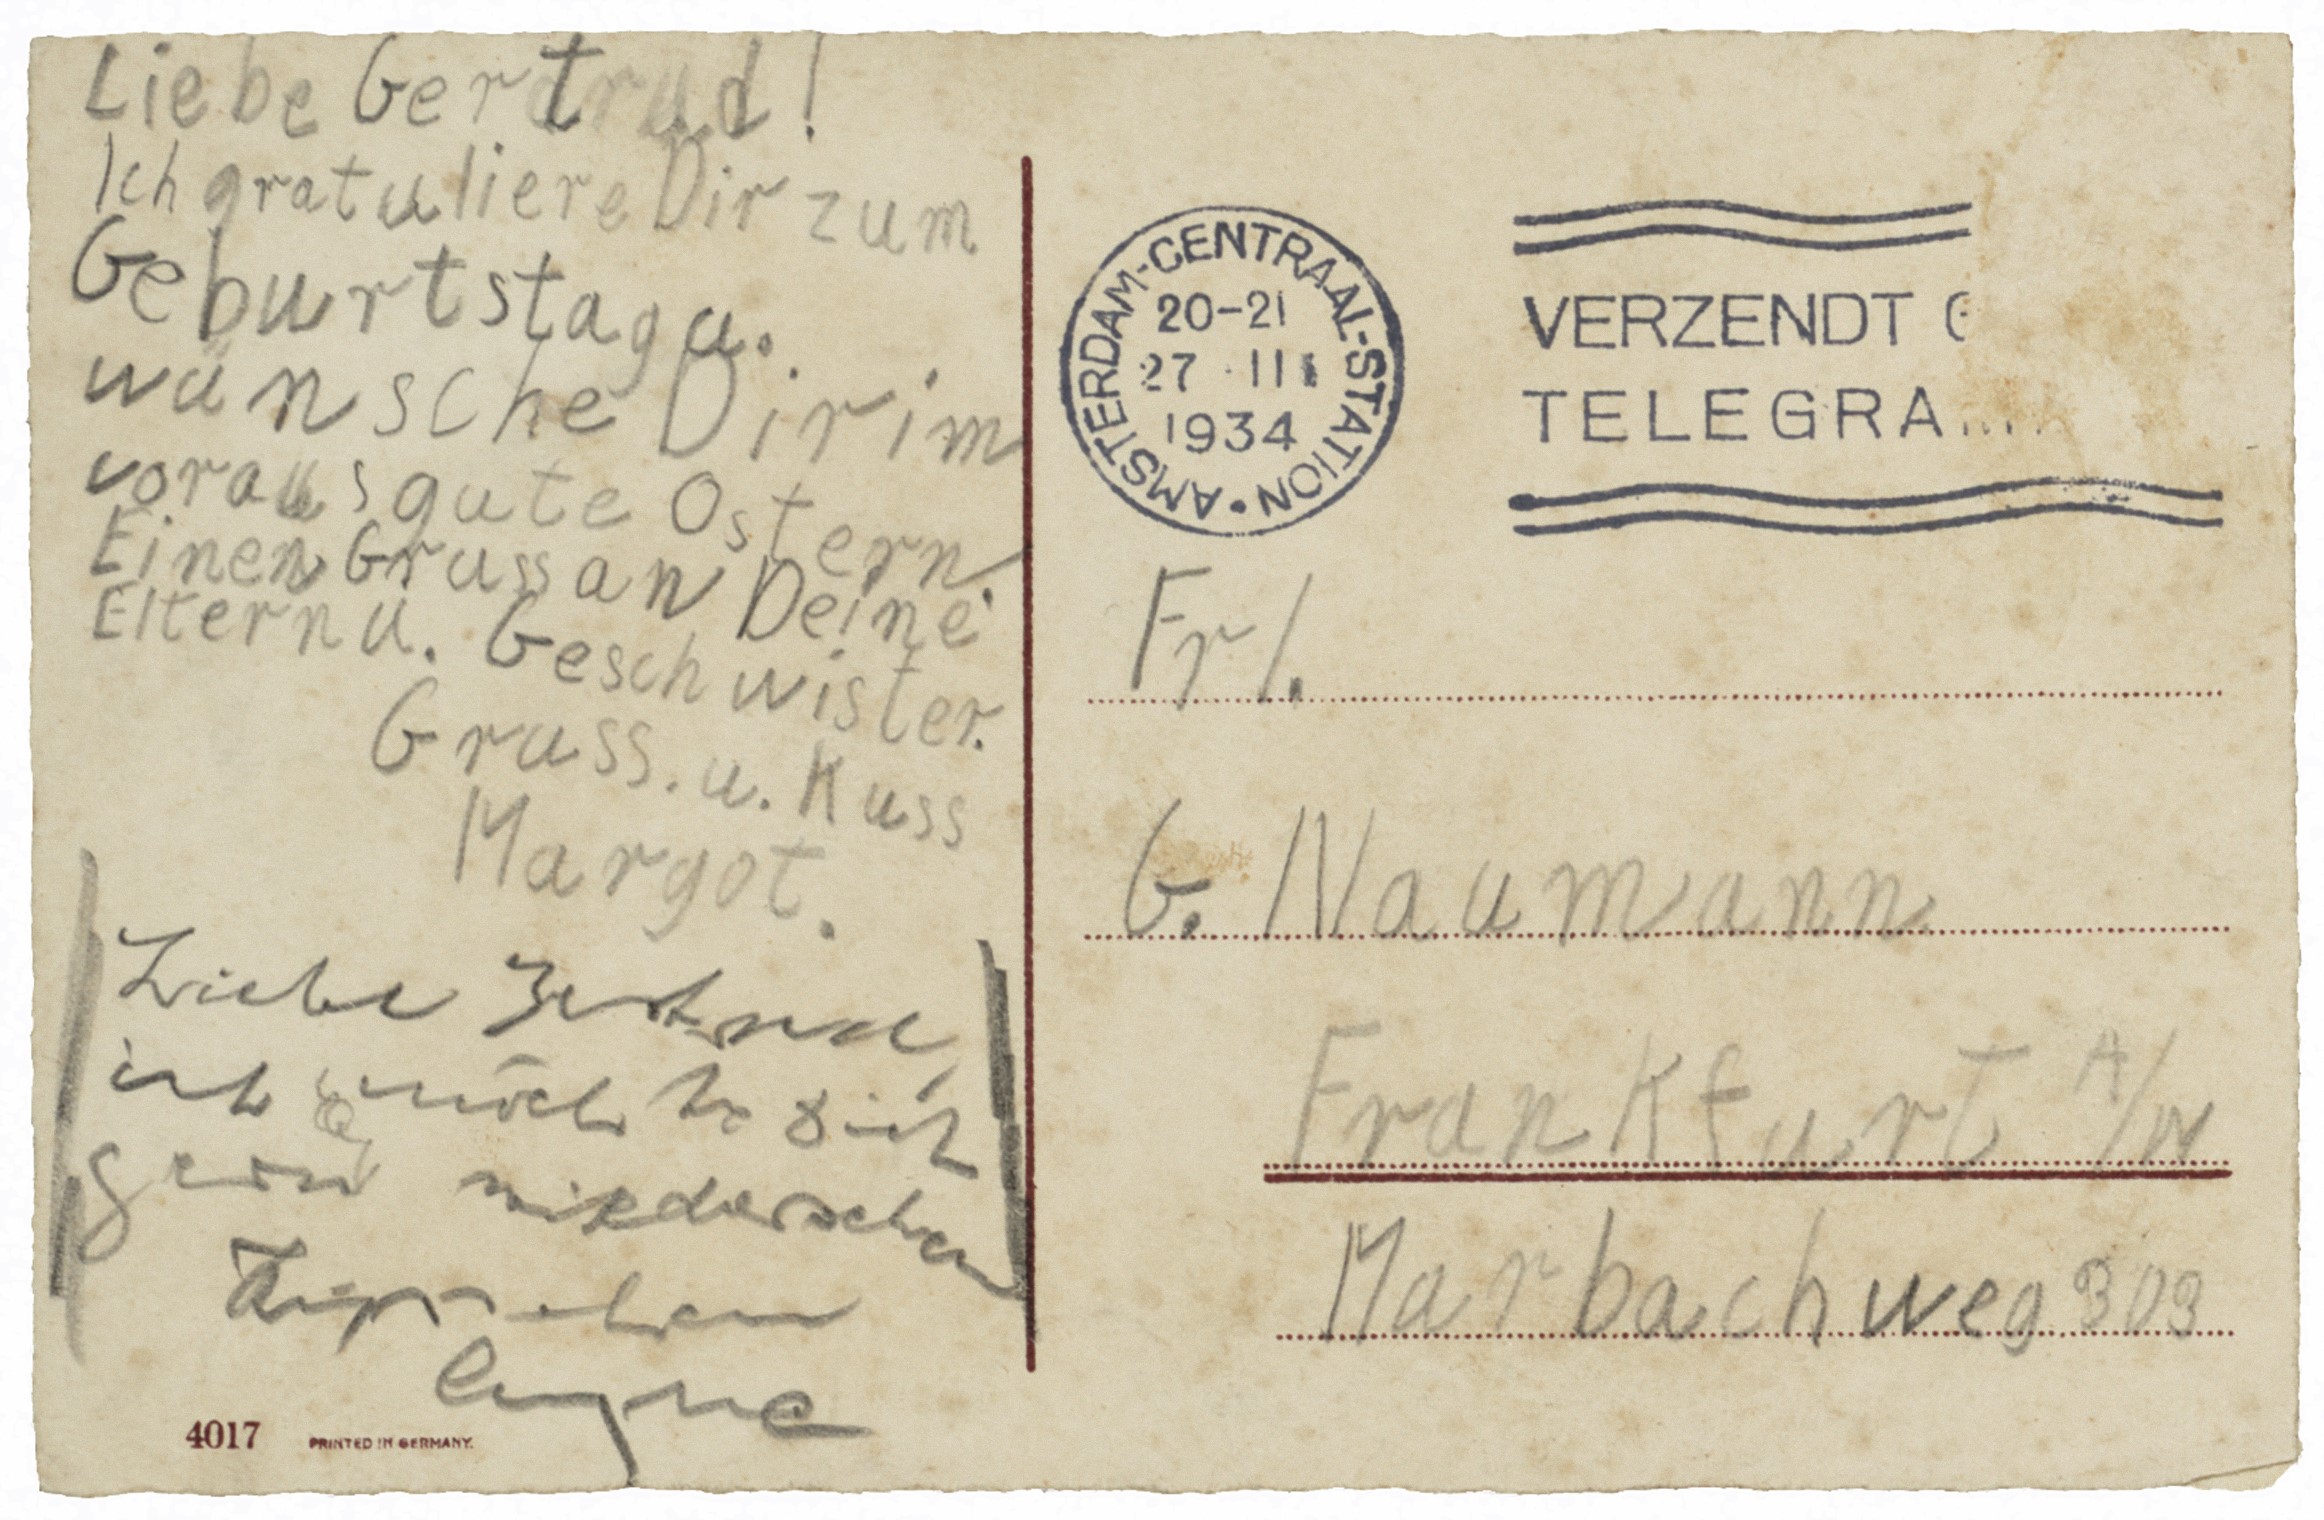 Liebe Gertrud!
Ich gratuliere Dir zum
Geburtstag u.
wünsche Dir im
voraus gute Ostern.
Einen Gruss an Deine
Eltern u. Geschwister.
Gruss. u. Kuss
Margot.
Liebe Gertrud,
ich möchte dich
gern wiedersehen
4017 PRINTED IN GERMANY.
AMSTERDAM-CENTRAAL-STATION
20-21
27 III
1934
VERZENDT
Frl.
G. Naumann
Frankfurt A/M
Marbachweg 303